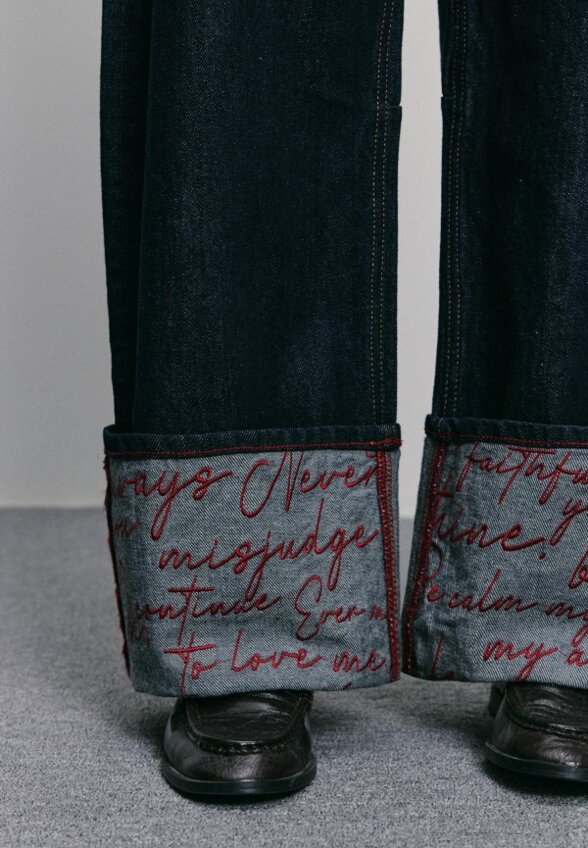 ways Never
misjudge
continue Ever m
to love me
faithfu
y
mine.
Be calm my
my a